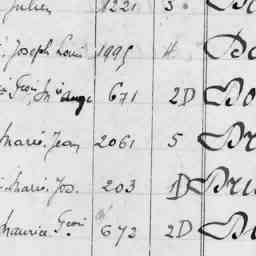 Julien 1221 3
Joseph Louis 1995 4
Geo. Mie ange 671 2D Bo
Marie Jean 2061 5 Br
Marie Jos. 203 1D Bru
Maurice Geo. 672 2D